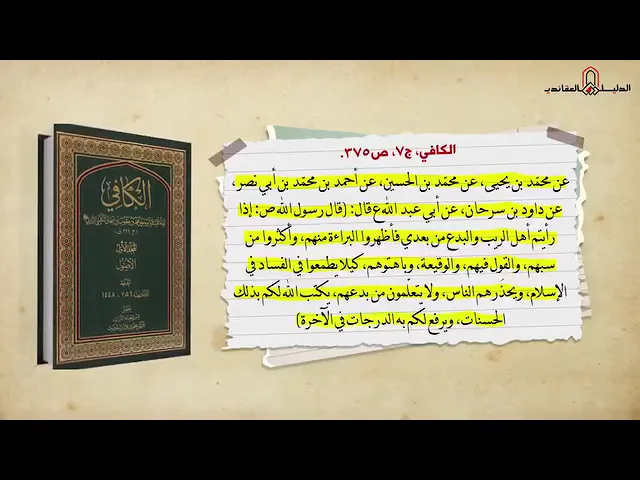 الدليل العقائدي
الكافي، ج٧، ص٣٧٥.
عن محمّد بن يحيى، عن محمّد بن الحسين، عن أحمد بن محمّد بن أبي نصر،
عن داود بن سرحان، عن أبي عبد الله ع قال: (قال رسول الله ص: إذا
رأيتم أهل الريب والبدع من بعدي فأظهروا البراءة منهم، وأكثروا من
سبهم، والقول فيهم، والوقيعة، وباهتوهم، كيلا يطمعوا في الفساد في
الإسلام، ويحذرهم الناس، ولا يتعلمون من بدعهم، يكتب الله لكم بذلك
الحسنات، ويرفع لكم به الدرجات في الآخرة)
الكافي
المجلد الأول
الأصول